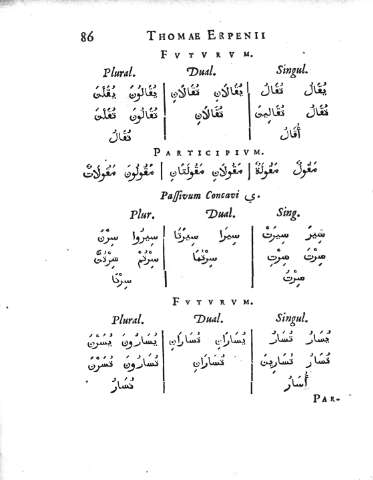 86 THOMAE ERPENII
FVTVRVM.
Plural. Dual. Singul.
يُقَالُ تُقَالُ | يُقَالَانِ تُقَالَانِ | يُقَالُونَ يُقَلْنَ
تُقَالُ تُقَالِينَ | تُقَالَانِ | تُقَالُونَ تُقَلْنَ
أُقَالُ نُقَالُ
PARTICIPIVM.
مَقُولٌ مَقُولَةٌ | مَقُولَانِ مَقُولَتَانِ | مَقُولُونَ مَقُولَاتٌ
Passivum Concavi ي.
Plur. Dual. Sing.
سِيرَ سِيرَتْ | سِيرَا سِيرَتَا | سِيرُوا سِرْنَ
سِرْتَ سِرْتِ | سِرْتُمَا | سِرْتُمْ سِرْتُنَّ
سِرْتُ سِرْنَا
FVTVRVM.
Plural. Dual. Singul.
يُسَارُ تُسَارُ | يُسَارَانِ تُسَارَانِ | يُسَارُونَ يُسَرْنَ
تُسَارُ تُسَارِينَ | تُسَارَانِ | تُسَارُونَ تُسَرْنَ
أُسَارُ نُسَارُ
PAR-